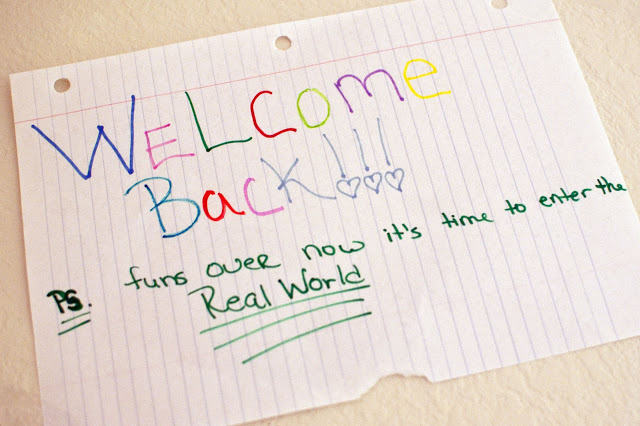 WeLCome
Back!!!
PS. funs over now it's time to enter the
Real World